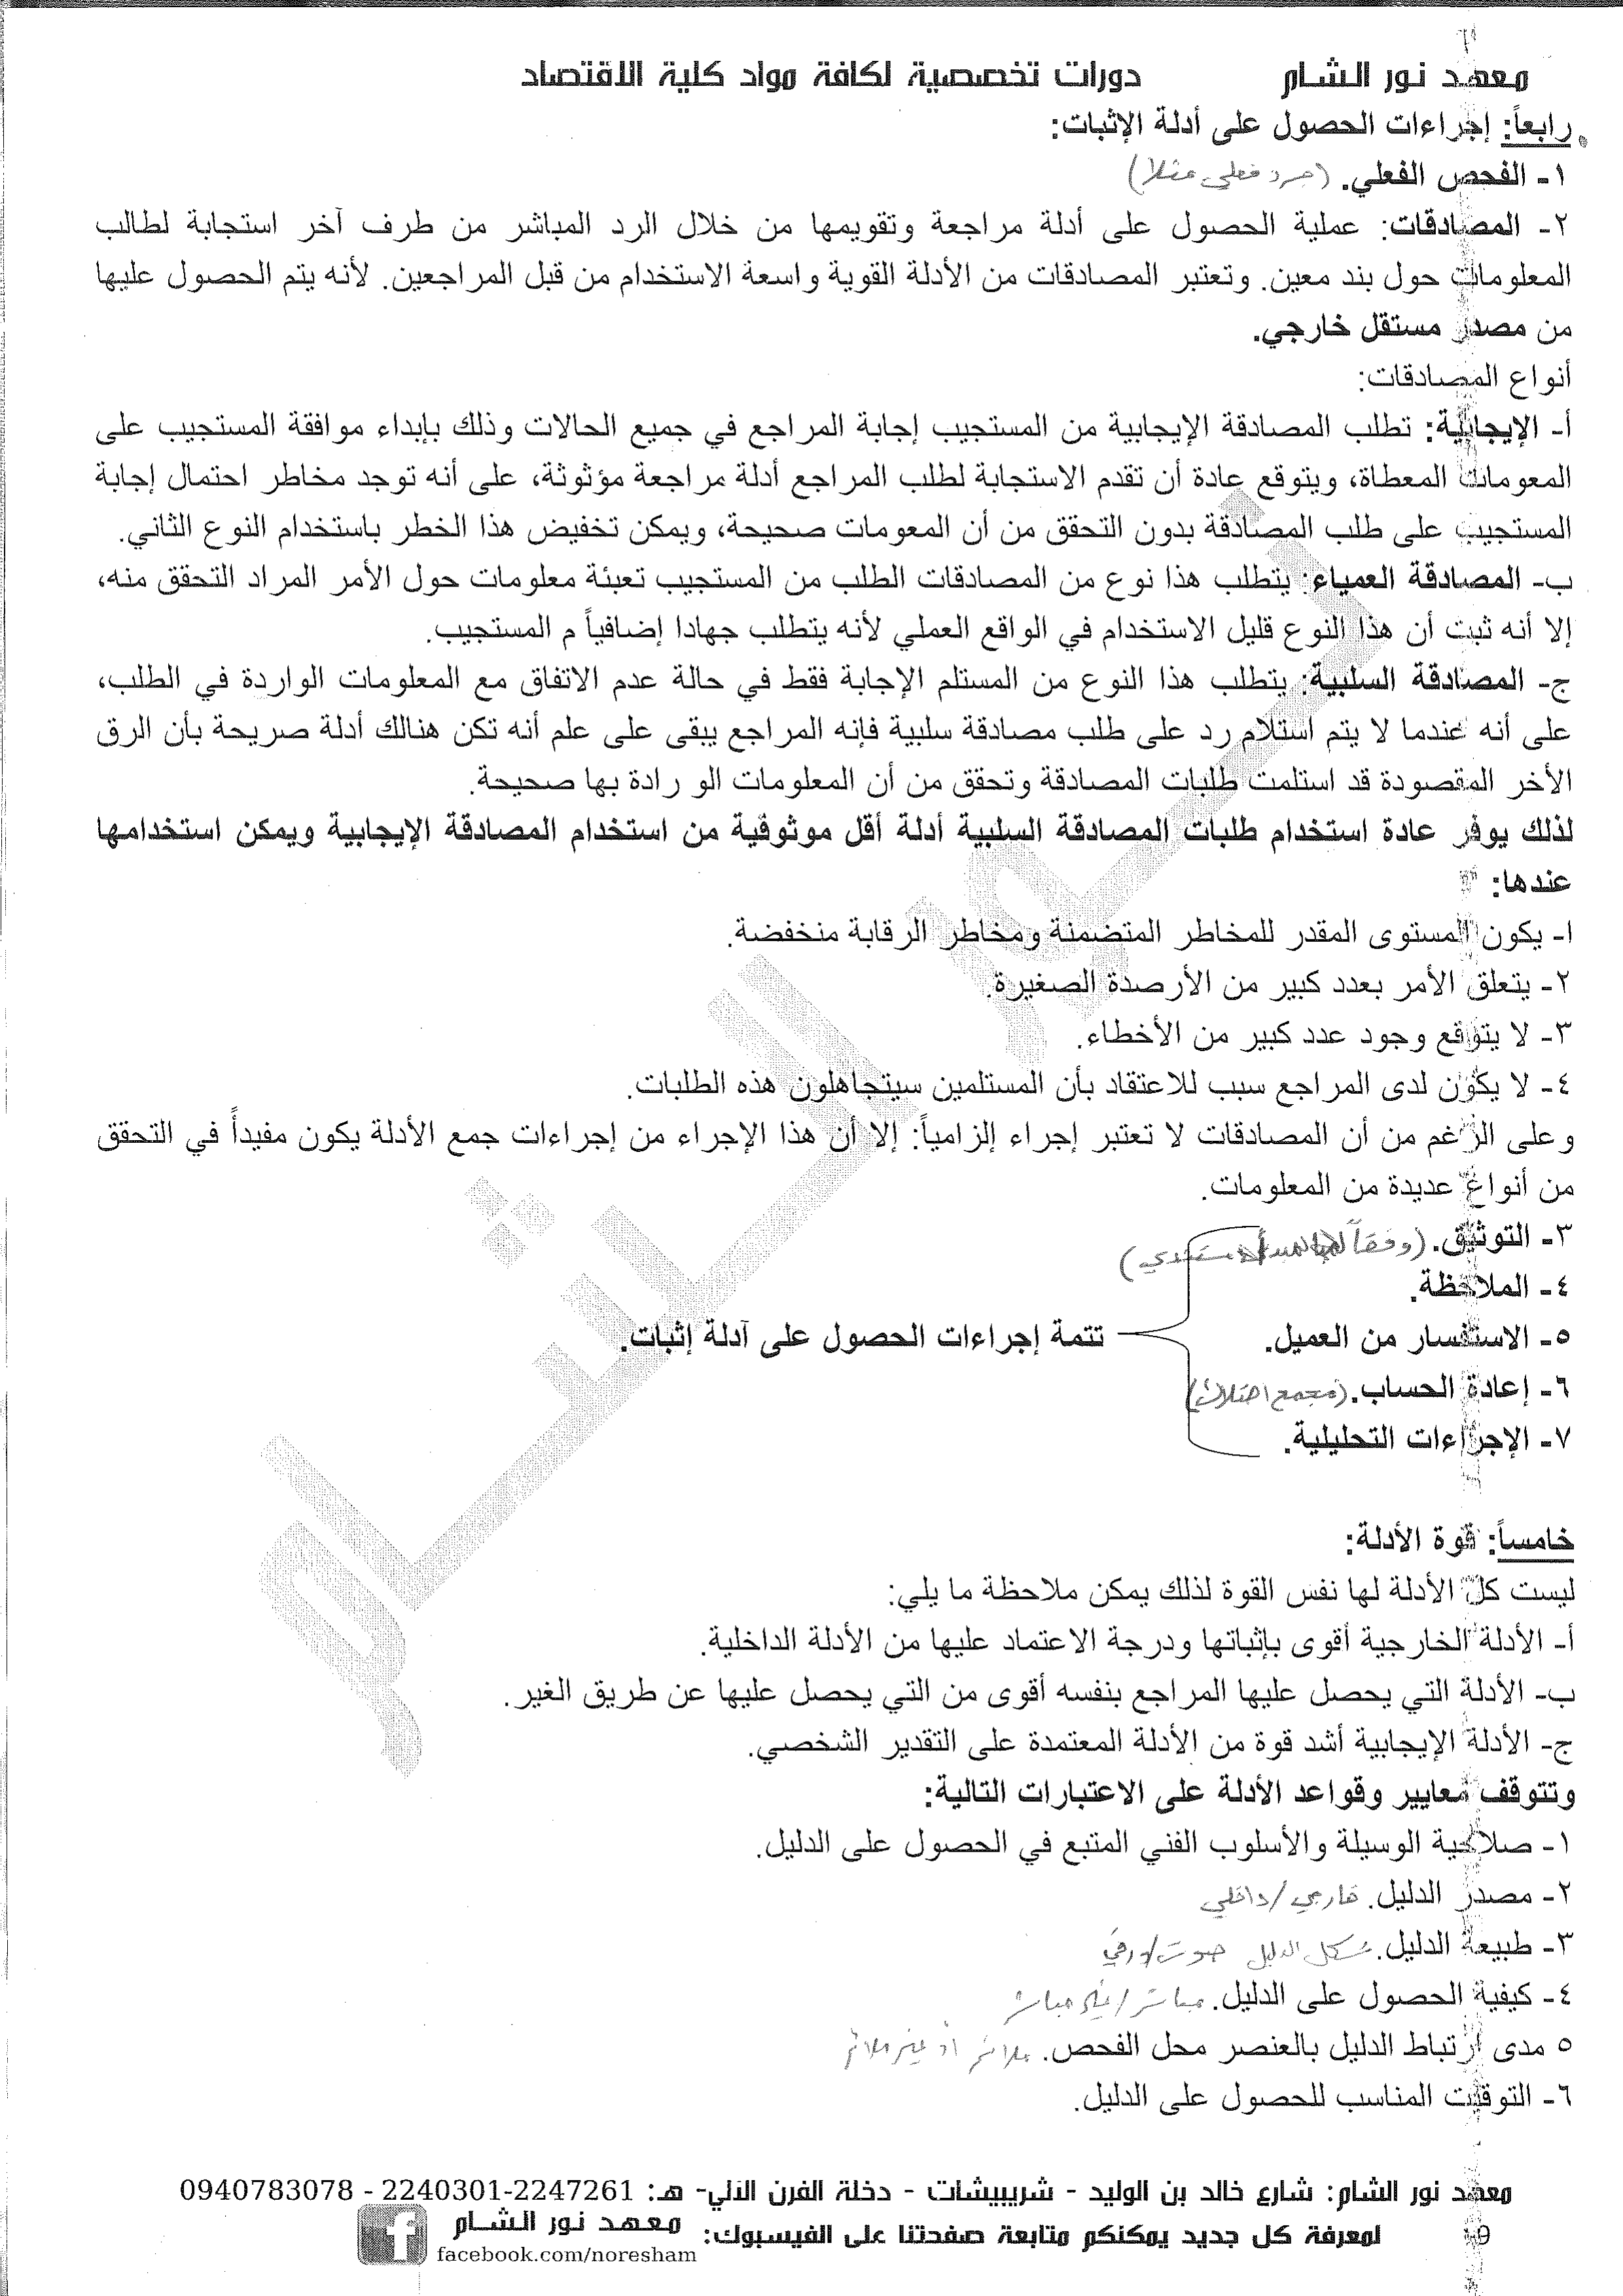 معهد نور الشام دورات تخصصية لكافة مواد كلية الاقتصاد
رابعاً: إجراءات الحصول على أدلة الإثبات:
١- الفحص الفعلي. (جرد فعلي مثلا)
٢- المصادقات: عملية الحصول على أدلة مراجعة وتقويمها من خلال الرد المباشر من طرف آخر استجابة لطالب
المعلومات حول بند معين. وتعتبر المصادقات من الأدلة القوية واسعة الاستخدام من قبل المراجعين. لأنه يتم الحصول عليها
من مصدر مستقل خارجي.
أنواع المصادقات:
أ- الإيجابية: تطلب المصادقة الإيجابية من المستجيب إجابة المراجع في جميع الحالات وذلك بإبداء موافقة المستجيب على
المعومات المعطاة، ويتوقع عادة أن تقدم الاستجابة لطلب المراجع أدلة مراجعة مؤثوثة، على أنه توجد مخاطر احتمال إجابة
المستجيب على طلب المصادقة بدون التحقق من أن المعومات صحيحة، ويمكن تخفيض هذا الخطر باستخدام النوع الثاني.
ب- المصادقة العمياء: يتطلب هذا نوع من المصادقات الطلب من المستجيب تعبئة معلومات حول الأمر المراد التحقق منه،
إلا أنه ثبت أن هذا النوع قليل الاستخدام في الواقع العملي لأنه يتطلب جهادا إضافياً م المستجيب.
ج- المصادقة السلبية: يتطلب هذا النوع من المستلم الإجابة فقط في حالة عدم الاتفاق مع المعلومات الواردة في الطلب،
على أنه عندما لا يتم استلام رد على طلب مصادقة سلبية فإنه المراجع يبقى على علم أنه تكن هنالك أدلة صريحة بأن الرق
الأخر المقصودة قد استلمت طلبات المصادقة وتحقق من أن المعلومات الو رادة بها صحيحة.
لذلك يوفر عادة استخدام طلبات المصادقة السلبية أدلة أقل موثوقية من استخدام المصادقة الإيجابية ويمكن استخدامها
عندها:
ا- يكون المستوى المقدر للمخاطر المتضمنة ومخاطر الرقابة منخفضة.
٢- يتعلق الأمر بعدد كبير من الأرصدة الصغيرة.
٣- لا يتوقع وجود عدد كبير من الأخطاء.
٤- لا يكون لدى المراجع سبب للاعتقاد بأن المستلمين سيتجاهلون هذه الطلبات.
وعلى الرغم من أن المصادقات لا تعتبر إجراء إلزامياً: إلا أن هذا الإجراء من إجراءات جمع الأدلة يكون مفيداً في التحقق
من أنواع عديدة من المعلومات.
٣- التوثيق. (وفقاً مستندي)
٤- الملاحظة.
٥- الاستفسار من العميل. تتمة إجراءات الحصول على آدلة إثبات.
٦- إعادة الحساب. (مجمع اهتلاك)
٧- الإجراءات التحليلية.
خامساً: قوة الأدلة:
ليست كل الأدلة لها نفس القوة لذلك يمكن ملاحظة ما يلي:
أ- الأدلة الخارجية أقوى بإثباتها ودرجة الاعتماد عليها من الأدلة الداخلية.
ب- الأدلة التي يحصل عليها المراجع بنفسه أقوى من التي يحصل عليها عن طريق الغير.
ج- الأدلة الإيجابية أشد قوة من الأدلة المعتمدة على التقدير الشخصي.
وتتوقف معايير وقواعد الأدلة على الاعتبارات التالية:
١- صلاحية الوسيلة والأسلوب الفني المتبع في الحصول على الدليل.
٢- مصدر الدليل. خارجي/داخلي
٣- طبيعة الدليل. شكل الدليل صوت/ورقي
٤- كيفية الحصول على الدليل. مباشر/غير مباشر
٥ مدى ارتباط الدليل بالعنصر محل الفحص. ملائم أو غير ملائم
٦- التوقيت المناسب للحصول على الدليل.
معهد نور الشام: شارع خالد بن الوليد - شريبيشات - دخلة الفرن الآلي- هـ: 2247261-2240301 - 0940783078
لمعرفة كل جديد يمكنكم متابعة صفحتنا على الفيسبوك: معهد نور الشام
facebook.com/noresham
نور الشام